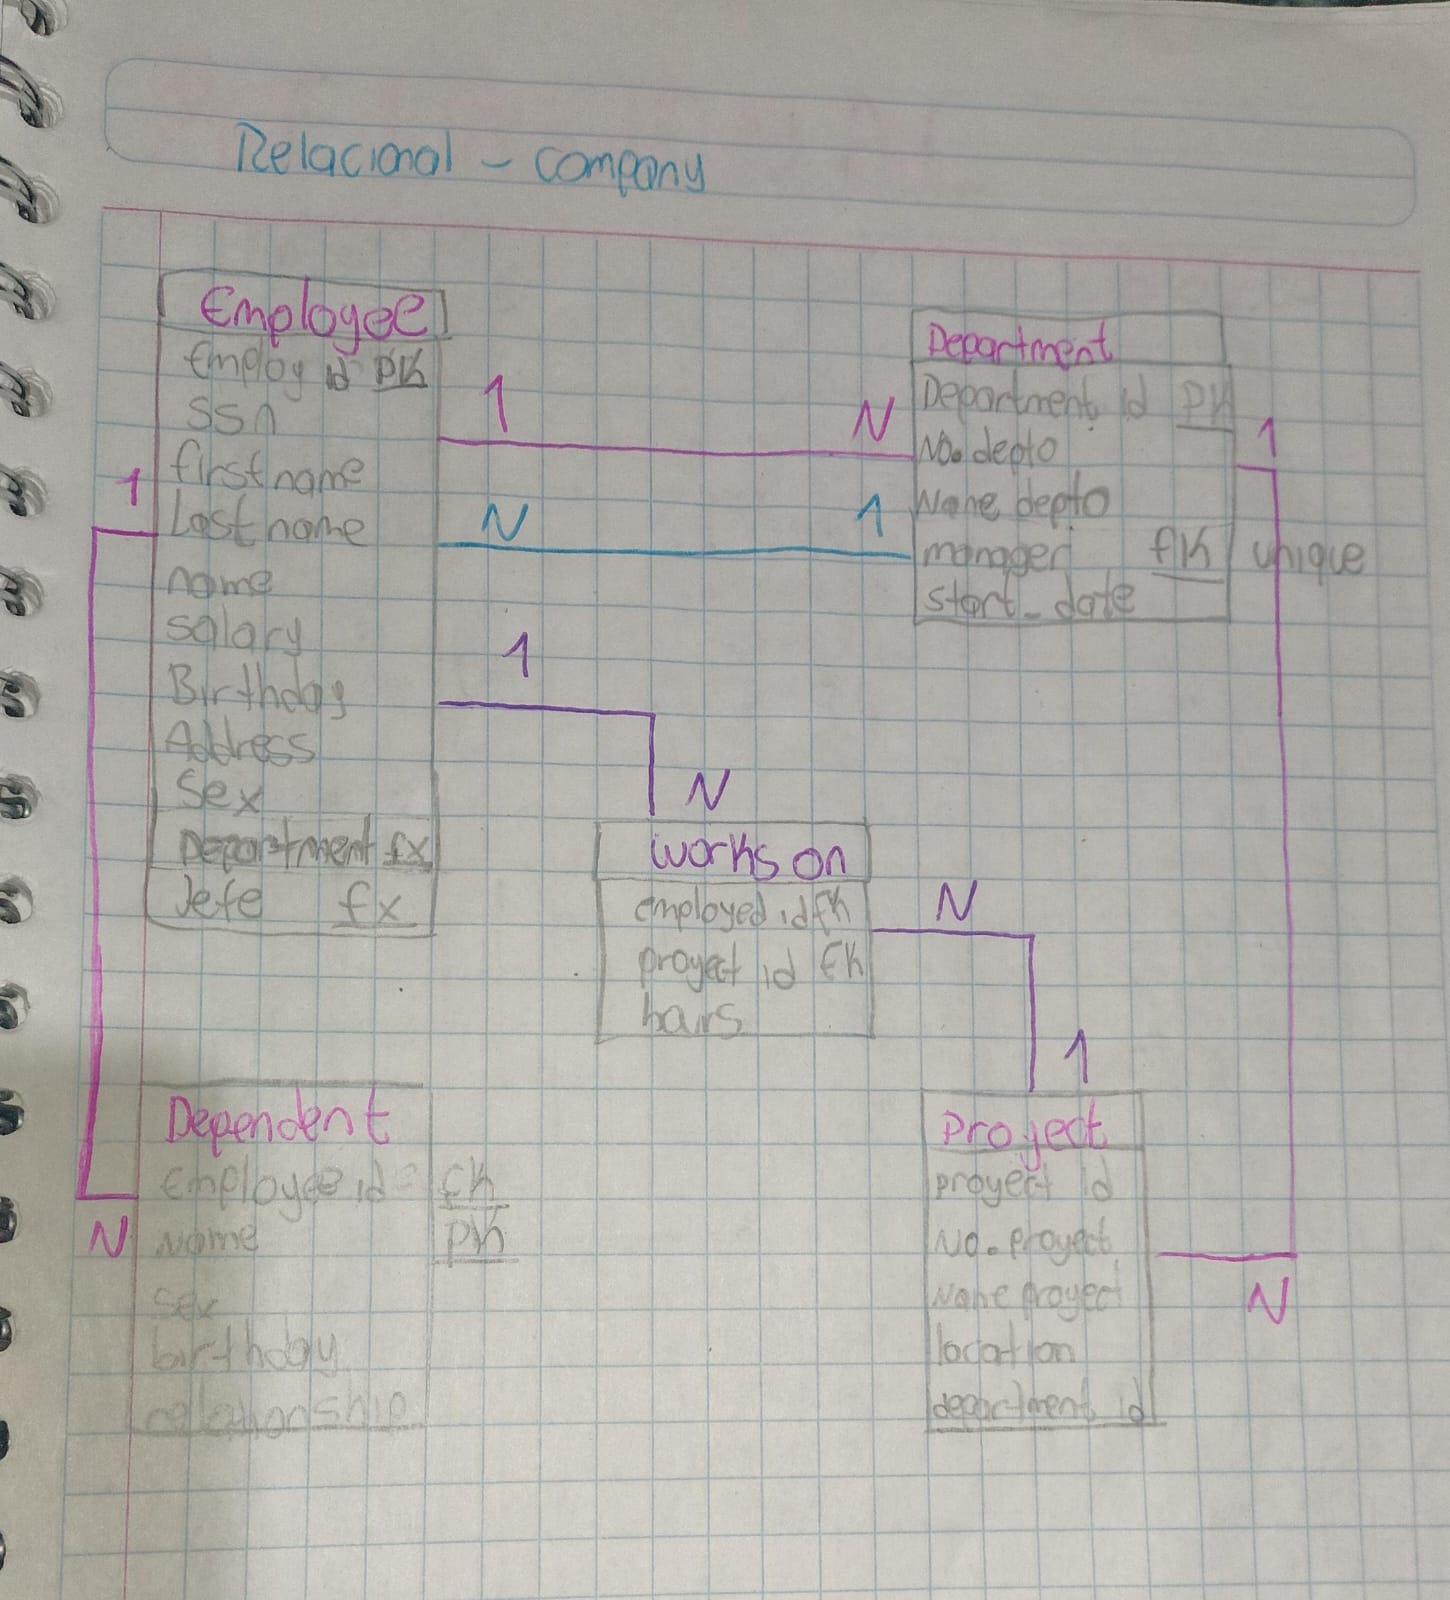 Relacional - company
Employee
Employ id PK
SSn
first name
Last name
name
salary
Birthday
Address
Sex
Department fx
Jefe fx
1
N
1
N
1
Department
Department id PK
No. depto
Name depto
manager fK unique
start_date
1
N
works on
employed id fk
proyect id fk
hours
N
1
1
N
Dependent
Employee id fk
Name PK
sex
birthday
relationship
Proyect
proyect id
No. proyect
Name proyect
location
department id
N